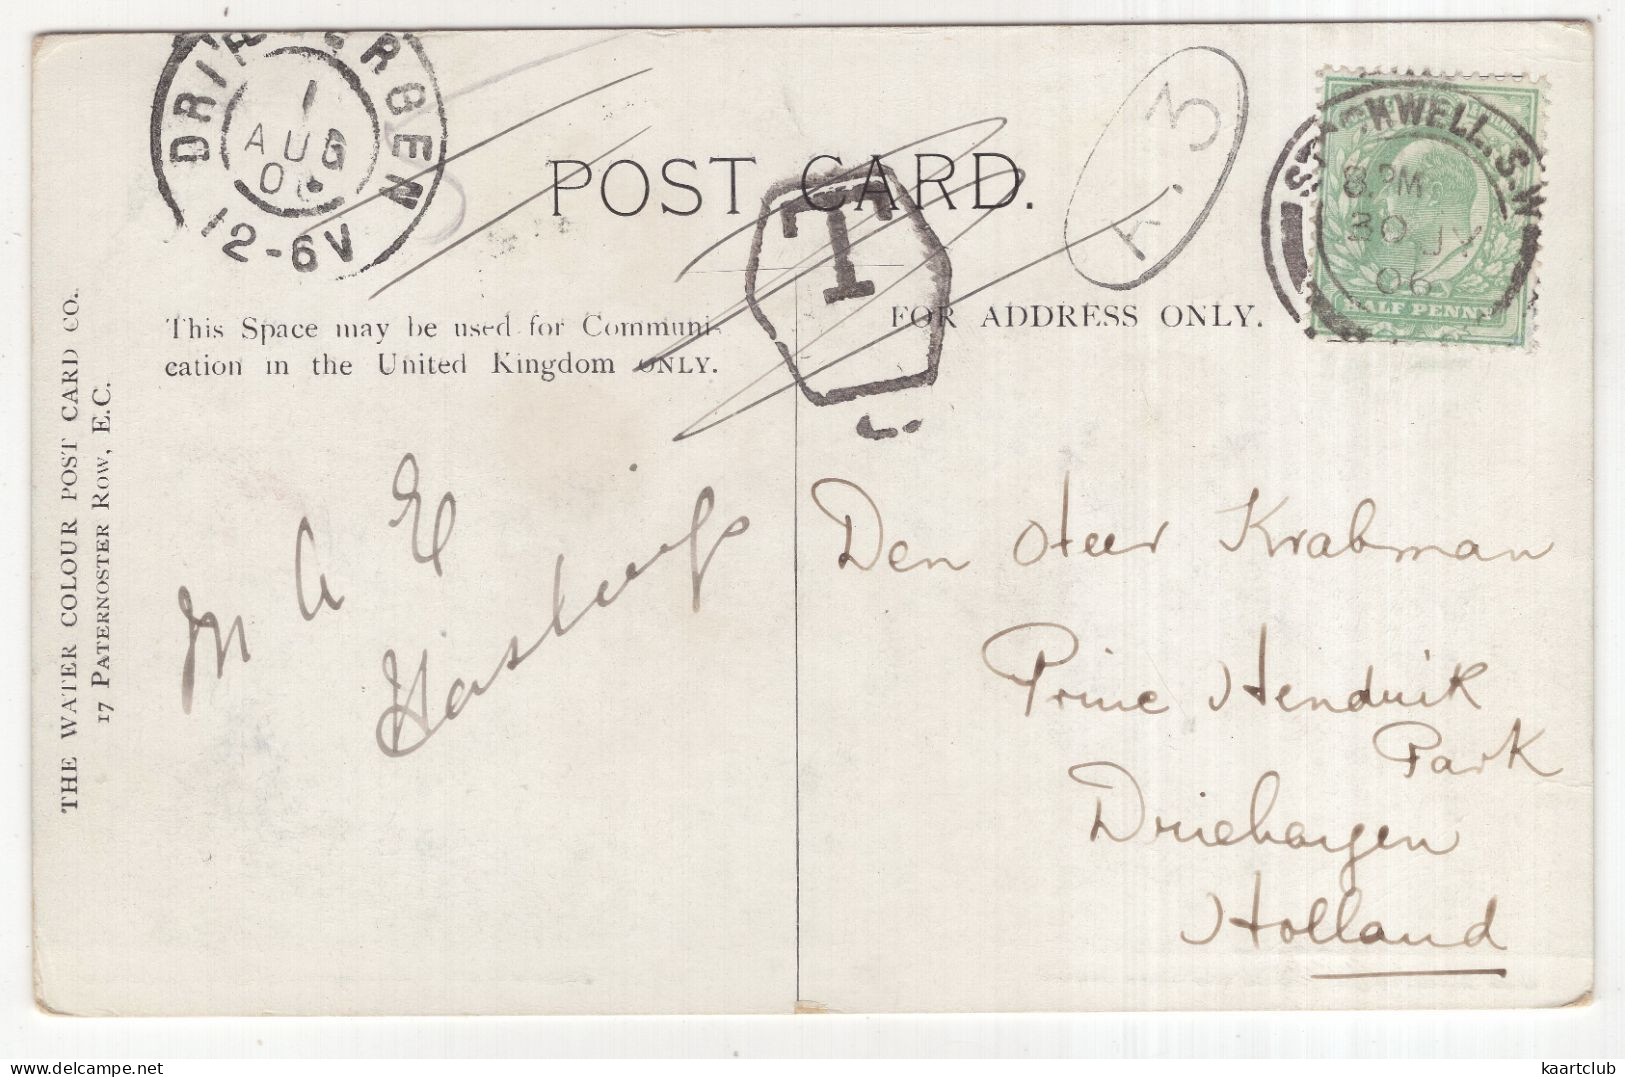 DRIEBERGEN
1
AUG
06
12-6V
POST CARD.
T
A.3
STOCKWELL.S.W
8. PM
30 JY
06
HALF PENNY
This Space may be used for Communi-
cation in the United Kingdom ONLY.
FOR ADDRESS ONLY.
THE WATER COLOUR POST CARD CO.
17 PATERNOSTER ROW, E.C.
M A E
Hastings
Den Heer Krabman
Prine Hendrik
Park
Driebergen
Holland
kaartclub